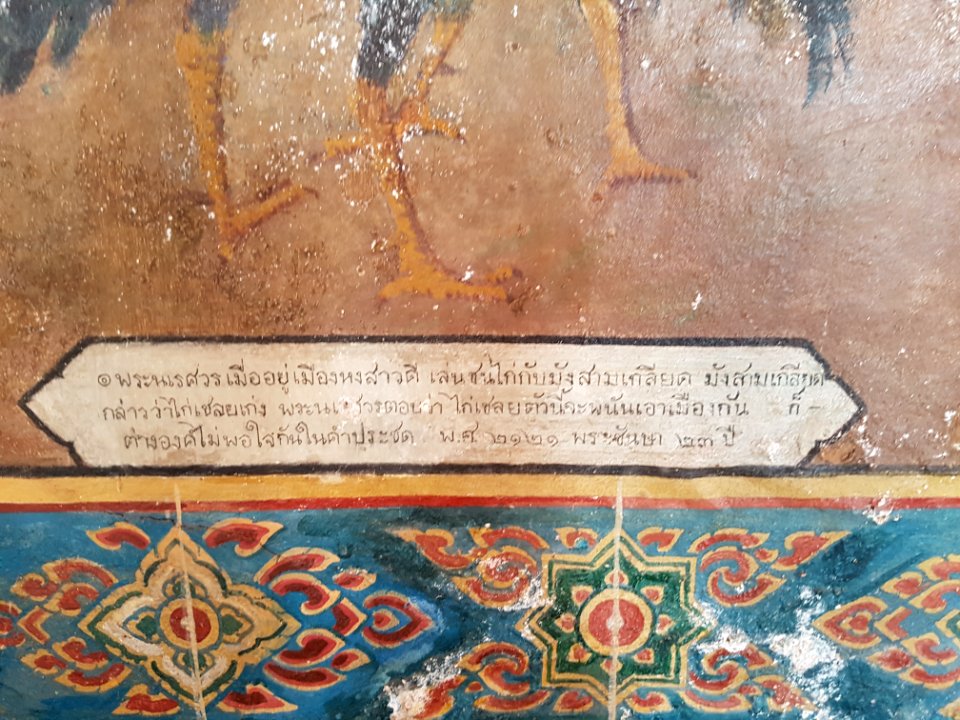 ๑ พระนเรศวร เมื่ออยู่เมืองหงสาวดี เล่นชนไก่กับมังสามเกลียด มังสามเกลียด
กล่าวว่าไก่เชลยเก่ง พระนเรศวรตอบว่า ไก่เชลยตัวนี้จะพนันเอาเมืองกัน ก็ –
ต่างองค์ไม่พอใจกันในคำประชด พ.ศ. ๒๑๒๑ พระชันษา ๒๓ ปี